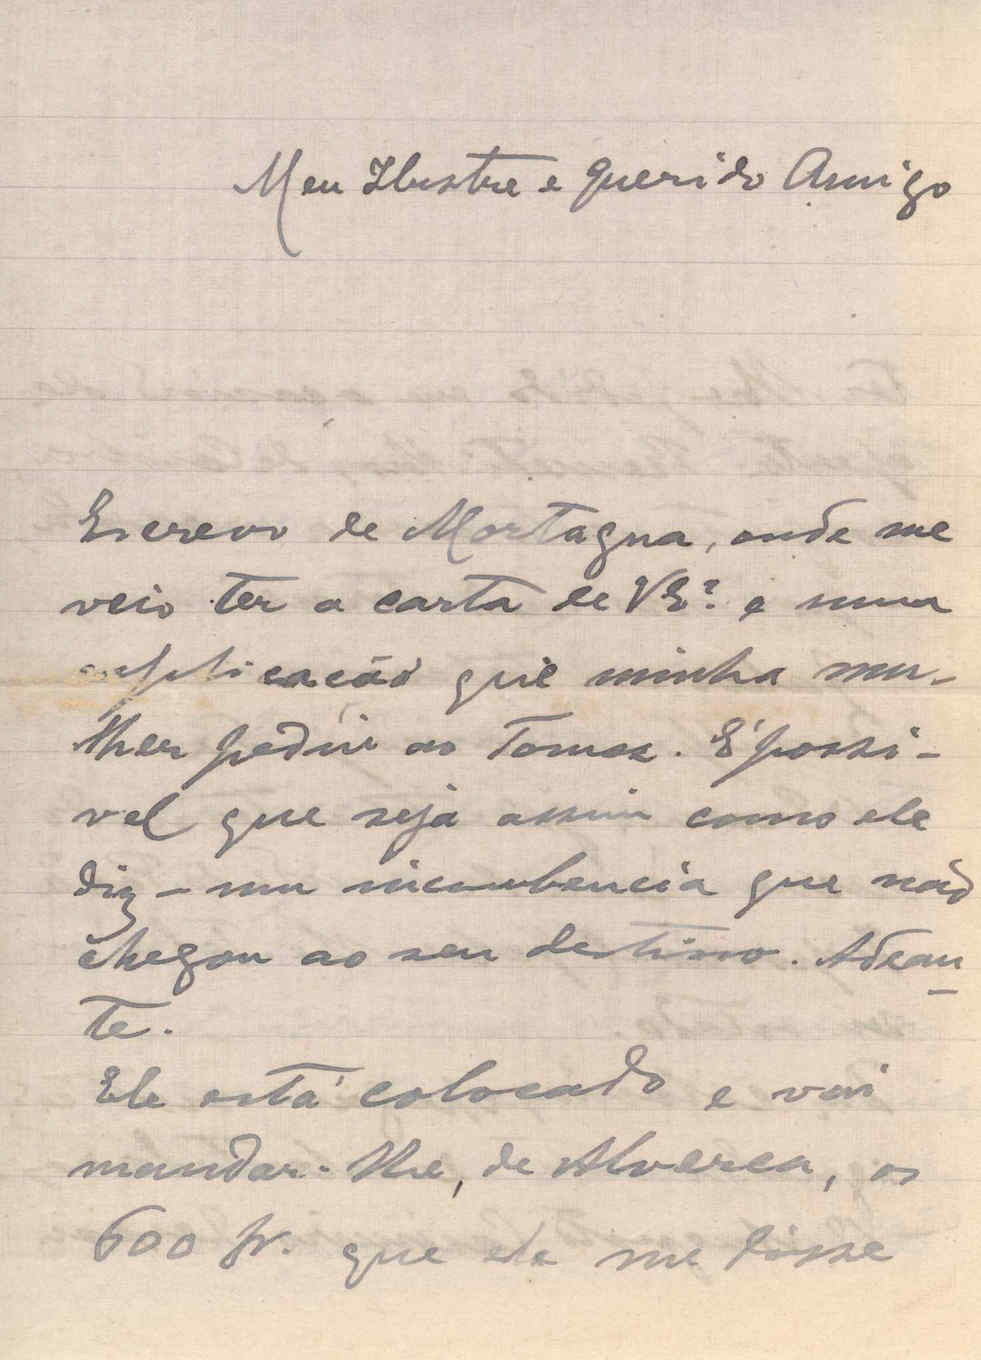 Meu Ilustre e querido Amigo
Escrevo de Mortagua, onde me
veio ter a carta de VEª. e uma
explicação que minha mu-
lher pediu ao Tomaz. É possi-
vel que seja assim como ele
diz – uma incumbencia que não
chegou ao seu destino. Adean-
te.
Ele está colocado e vai
mandar-lhe, de Alverca, os
600 fr. que ele me disse